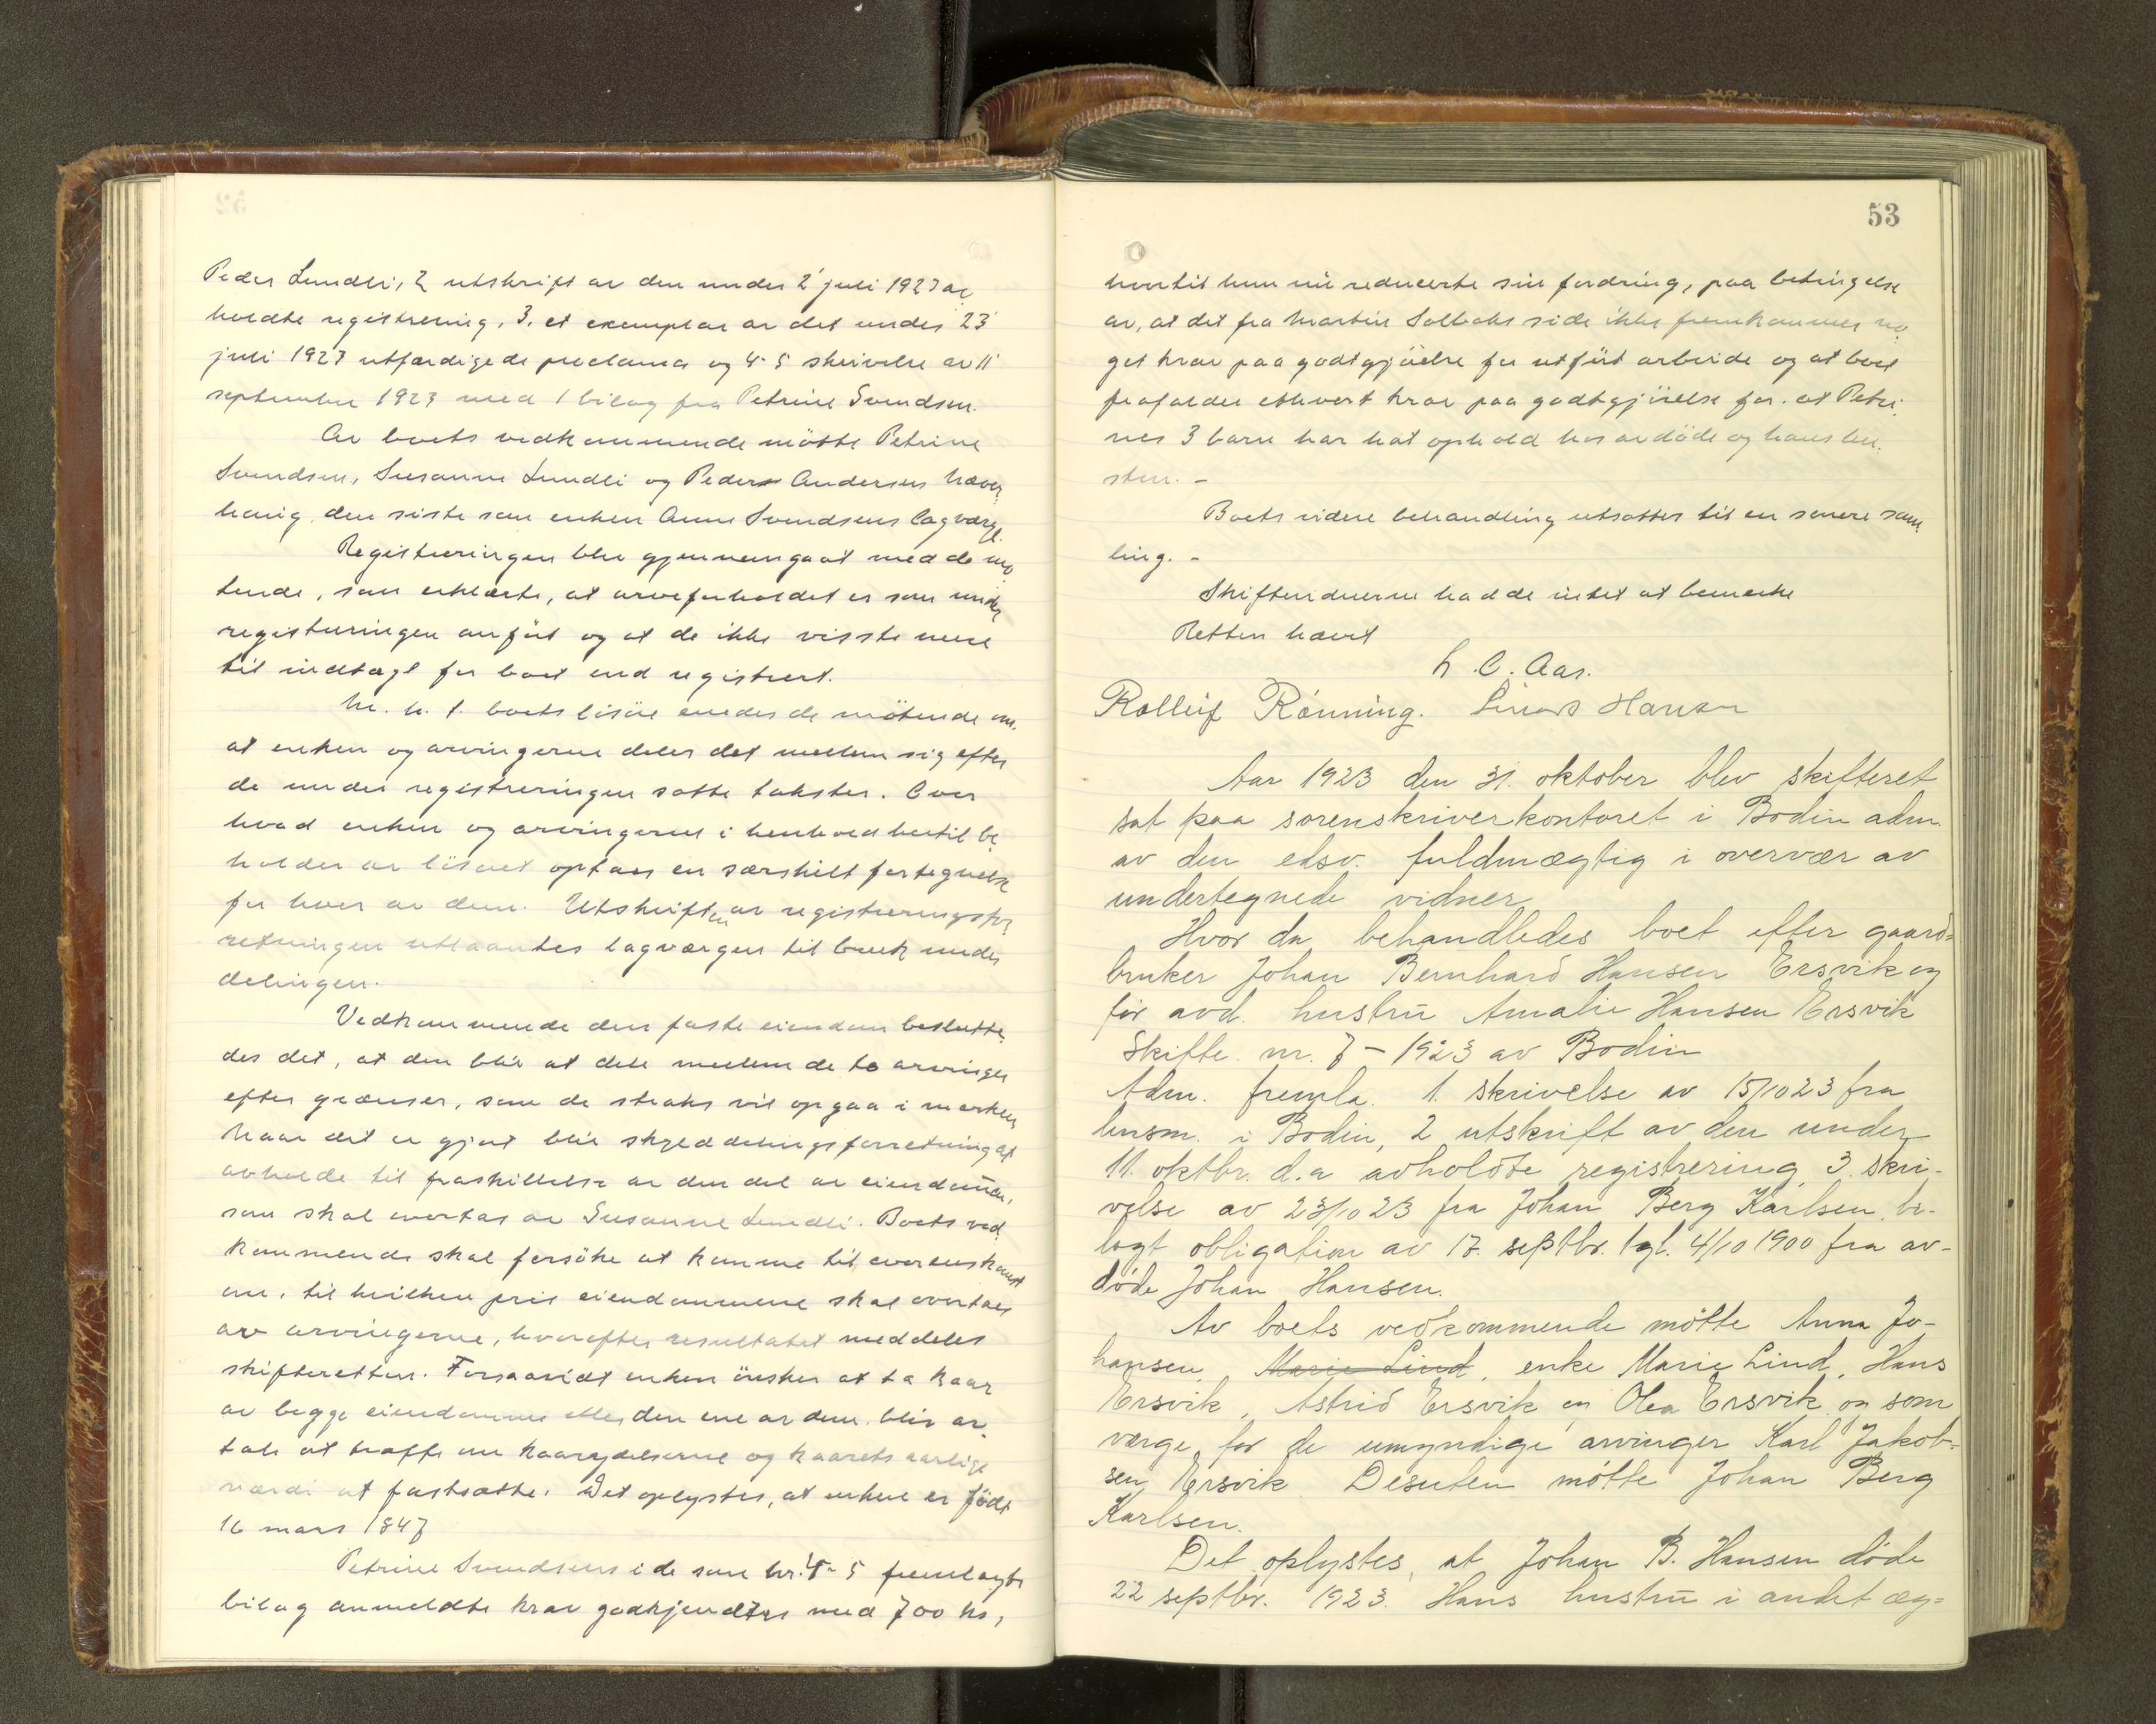 Peder Lundli, 2 utskrift av den under 2' juli 1923 av
holdte registrering, 3. et exemplar av det under 23'
juli 1923 utfærdigede proclama og 4-5 skrivelse av 11'
september 1923 med 1 bilag fra Petrine Svendsen.
Av boets vedkommende mötte Petrine
Svendsen, Susanne Lundli og Peder Andersen
den siste som enken Anne Svendsens lagværge.
Registreringen blev gjennemgaat med de mö
tende, som erklærte, at arveforholdet er som under
registreringen anført og at de ikke visste mere
til indtægt for boet end registrert.
M. h. t. boets lösöre enedes de mötende om,
at enken og arvingerne deler det mellem sig efter
de under registreringen satte takster. Over
hvad enken og arvingerne i henhold hertil be
holder av lösöret optaes en særskilt fortegnelse
for hver av dem. Utskriften av registreringsfor
retningen utlaantes lagværgen til bruk under
delingen.
Vedkommende den faste eiendom beslutte
des det, at den blir at dele mellem de to arvinger
efter grænser, som de straks vil opgaa i marken
Naar det er gjort blir skylddelingsforretning at
avholde til fraskillelse av den del av eiendommen,
som skal overtas av Susanne Lundli. Boets ved
kommende skal forsöke at komme til overenskomst
om, til hvilken pris eiendommene skal overtaes
av arvingerne, hvorefter resultatet meddeles
skifteretten. Forsaavidt enken önsker at ta kaar
av begge eiendomme eller den ene av dem, blir av
tale at træffe om kaarydelserne og kaarets aarlige
værdi at fastsætte. Det oplystes, at enken er födt
16 mars 1847
Petrine Svendsens i de som nr. 4-5 fremlagte
bilag anmeldte krav godkjendtes med 700 kr,
53
hvortil hun nu reducerte sin fordring, paa betingelse
av, at det fra Martin Solbaks side ikke fremkommer no
get krav paa godtgjörelse for utfört arbeide og at boet
frafalder ethvert krav paa godtgjörelse for at Petri
nes 3 barn har hat ophold hos avdöde og hans hu
stru. -
Boets videre behandling utsattes til en senere sam
ling. -
Skiftevidnerne hadde intet at bemerke
Retten hævet
H. C. Aas.
Rolleif Rønning. Linerd Hansen
Aar 1923 den 31. oktober blev skifteret
sat paa sorenskriverkontoret i Bodin adm.
av den edsv. fuldmægtig i overvær av
undertegnede vidner
Hvor da behandledes boet efter gaard=
bruker Johan Bernhard Hansen Ersvik og
før avd. hustru Amalie Hansen Ersvik
Skifte. nr. 7 - 1923 av Bodin
Adm. fremla. 1. skrivelse av 15/10 23 fra
lensm. i Bodin, 2 utskrift av den under
11. oktbr. d.a avholdte registrering, 3. skri-
velse av 23/10 23 fra Johan Berg Karlsen, be-
lagt obligation av 17. septbr. tgl. 4/10 1900 fra av-
døde Johan Hansen.
Av boets vedkommende møtte Anna Jo-
hansen, Marie Lind, enke Marie Lind, Hans
Ersvik, Astrid Ersvik og Olea Ersvik og som
værge for de umyndige arvinger Karl Jakob-
sen Ersvik Desuten møtte Johan Berg
Karlsen.
Det oplystes, at Johan B. Hansen døde
22 septbr. 1923. Hans hustru i andet æg=